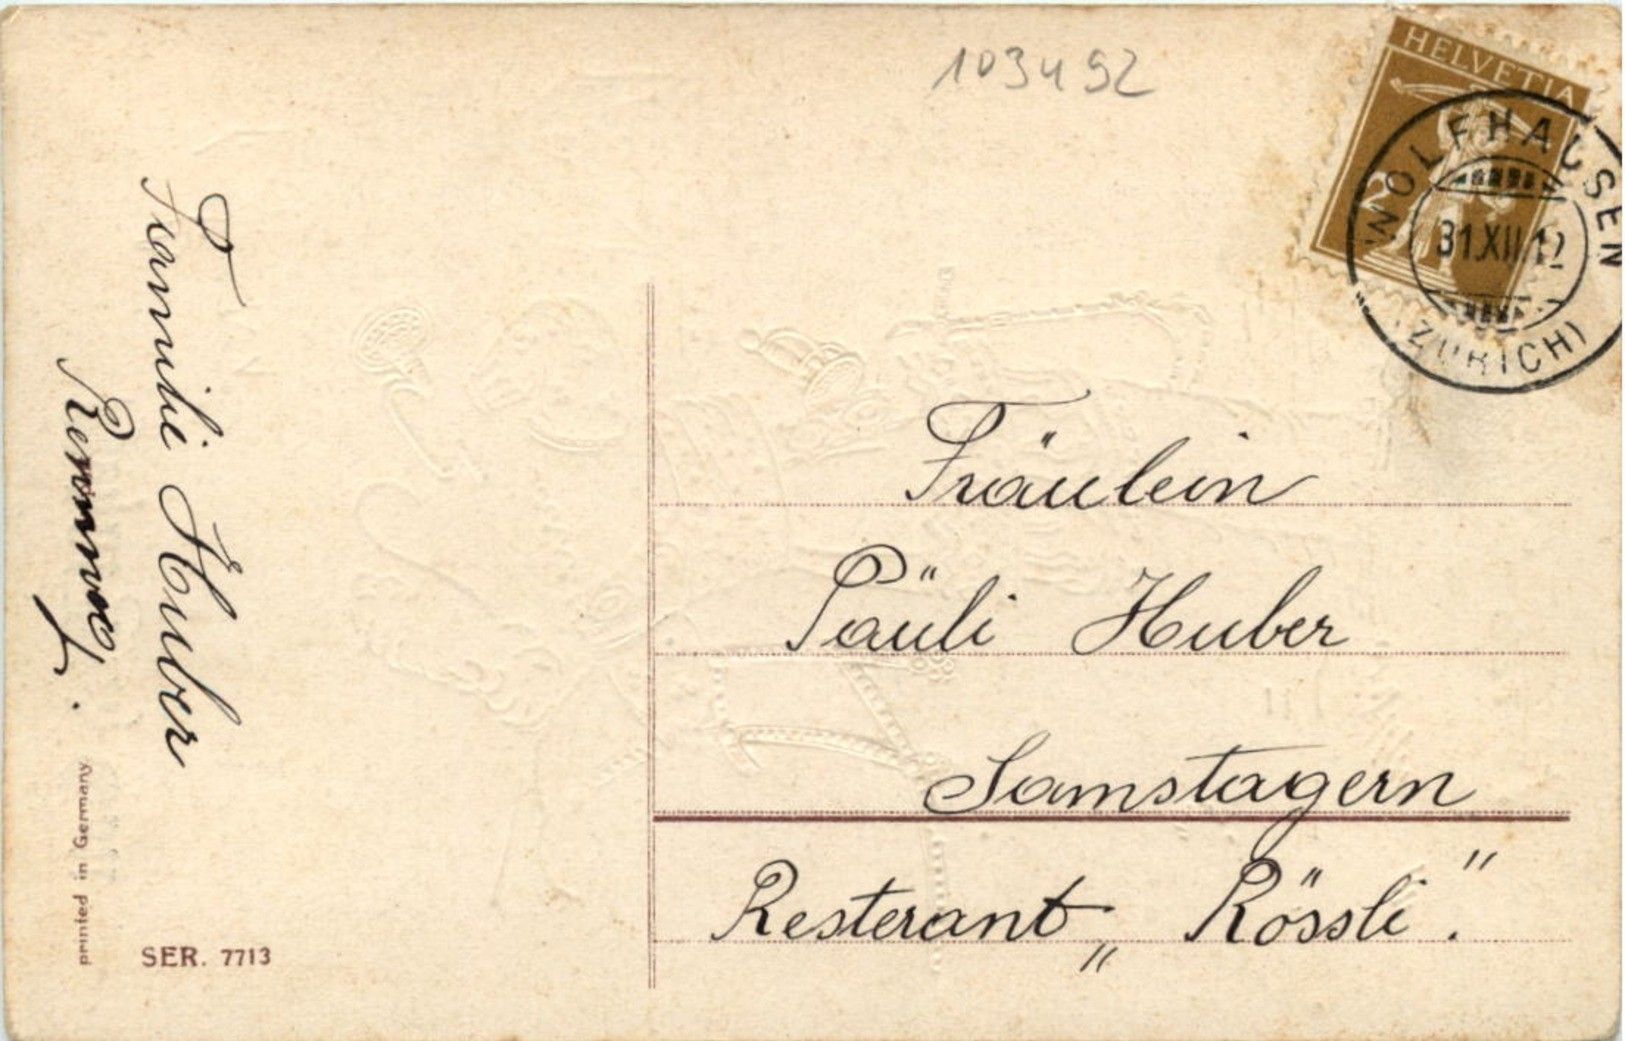 103492
HELVETIA
2
WOLFHAUSEN
31.XII.12
(ZÜRICH)
Familie Huber
printed in Germany
SER. 7713
Fräulein
Päuli Huber
Samstagern
Resterant „Rössli."